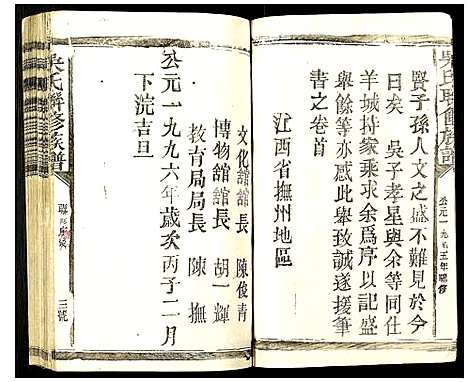 吳氏聯修族譜
公元一九九五年聯修
賢子孫人文之盛不難見於今
日矣 吳子孝星與余等同住
羊城持家乘求余爲序以記盛
舉餘等亦感此舉致誠遂援筆
書之卷首
江西省撫州地區
文化舘舘長 陳俊青
博物舘舘長 胡一輝
教育局局長 陳撫
公元一九九六年歲次丙子二月
下浣吉旦
吳氏聯修族譜
三號